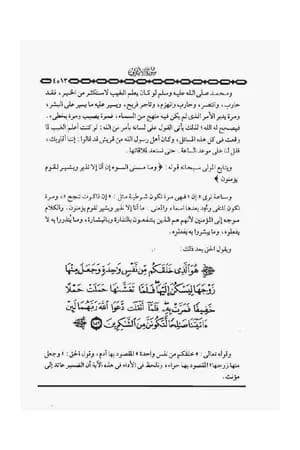 سورة الأعراف
٤٥١٣
ومحمد صلى الله عليه وسلم لو كان يعلم الغيب لاستكثر من الخير، فقد
حارب، وانتصر، وحارب وانهزم، وتاجر فربح، ويسير عليه ما يسير على البشر،
ومرة يدبر الأمر الذى لم يكن فيه منهج من السماء، فمرة يصيب ومرة يخطىء.
فيصحح له الله؛ لذلك يأتى القول على لسانه بأمر من الله: لو كنت أعلم الغيب لما
وقعت فى كل هذه المسائل، وكان أهل رسول الله من قريش قد قالوا: إننا أقاربك،
قل لنا على موعد الساعة. حتى نستعد لملاقاتها.
ويتابع المولى سبحانه قوله: ﴿ وما مسنى السوء إن أنا إلا نذير وبشير لقوم
يؤمنون ﴾
وساعة ترى « إن » فهى مرة تكون شرطية مثل: « إن ذاكرت تنجح » ومرة
تكون للنفى وتجد بعدها اسماء، والمعنى: ما أنا إلا نذير وبشير لقوم يؤمنون. والكلام
موجه إلى المؤمنين لأنهم هم الذين ينتفعون بالنذارة وبالبشارة، وما يُنذروا به لا
يفعلوه، وما يبشروا به يفعلوه.
ويقول الحق بعد ذلك:
﴿ هُوَ الَّذِى خَلَقَكُم مِّن نَّفْسٍ وَاحِدَةٍ وَجَعَلَ مِنْهَا
زَوْجَهَا لِيَسْكُنَ إِلَيْهَا فَلَمَّا تَغَشَّاهَا حَمَلَتْ حَمْلًا
خَفِيفًا فَمَرَّتْ بِهِ فَلَمَّا أَثْقَلَت دَّعَوَا اللَّهَ رَبَّهُمَا لَئِنْ
ءَاتَيْتَنَا صَالِحًا لَّنَكُونَنَّ مِنَ الشَّاكِرِينَ ﴿١٨٩﴾
وقوله تعالى: « خلقكم من نفس واحدة » المقصود بها آدم، وقول الحق: « وجعل
منها زوجها » المقصود بها حواء، ونلحظ فى الأداء فى هذه الآية أن الضمير عائد إلى
مؤنث.